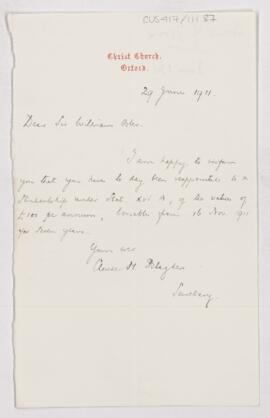 CUS417/111.87
Christ Church,
Oxford.
29 June 1911.
Dear Sir William Osler.
I am happy to inform
you that you have to day been reappointed to a
Studentship under Stat. XVI A, of the value of
£100 per annum, tenable from 16 Nov. 1911
for seven years.
Yours ever
H.
Secretary.